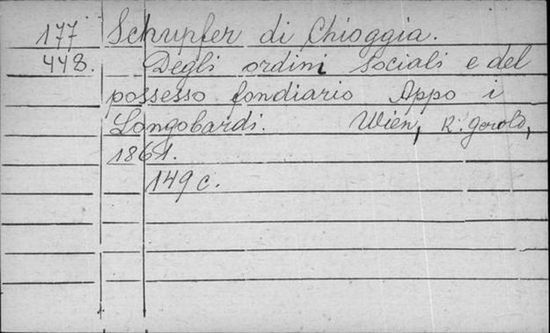 177 Schupfer di Chioggia.
448. Degli ordini sociali e del
possesso fondiario Appo i
Longobardi. Wien, K. Gerold,
1861.
149 c.